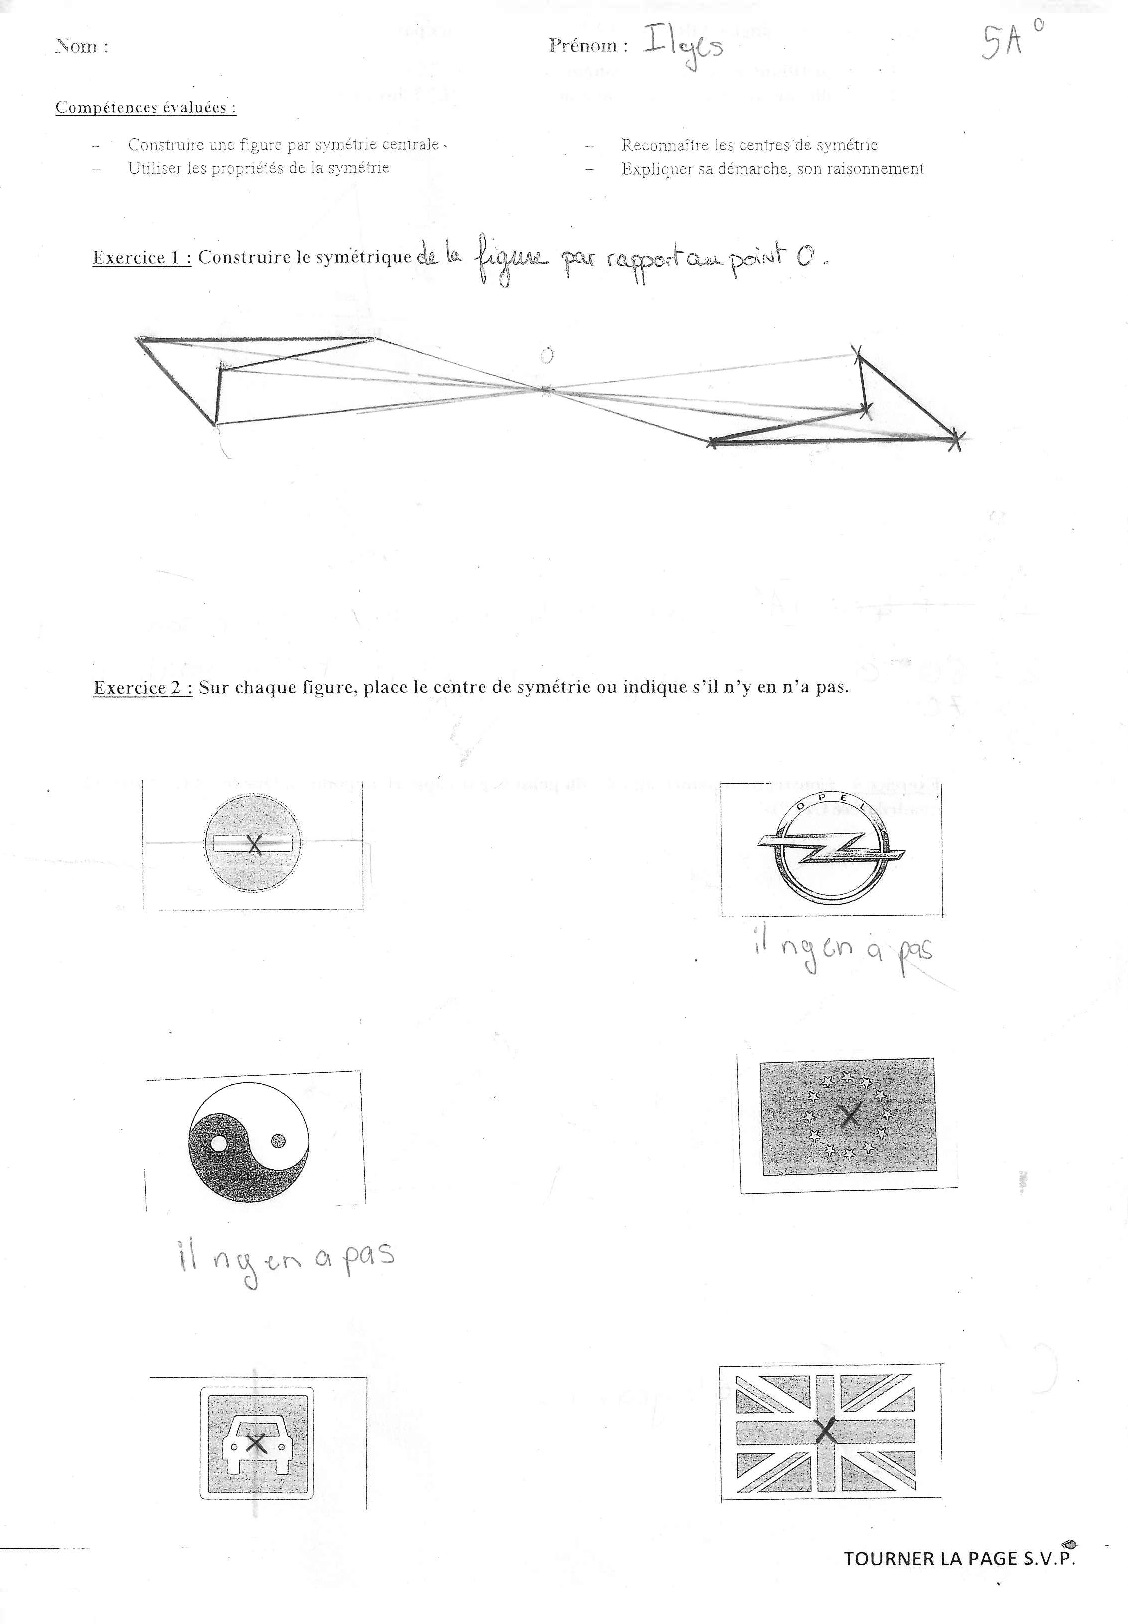 Nom :
Prénom : Ilyes
5A°
Compétences évaluées :
– Construire une figure par symétrie centrale
– Utiliser les propriétés de la symétrie
– Reconnaître les centres de symétrie
– Expliquer sa démarche, son raisonnement
Exercice 1 : Construire le symétrique de la figure par rapport au point O.
O
Exercice 2 : Sur chaque figure, place le centre de symétrie ou indique s'il n'y en n'a pas.
OPEL
il ny en a pas
il ny en a pas
TOURNER LA PAGE S.V.P.